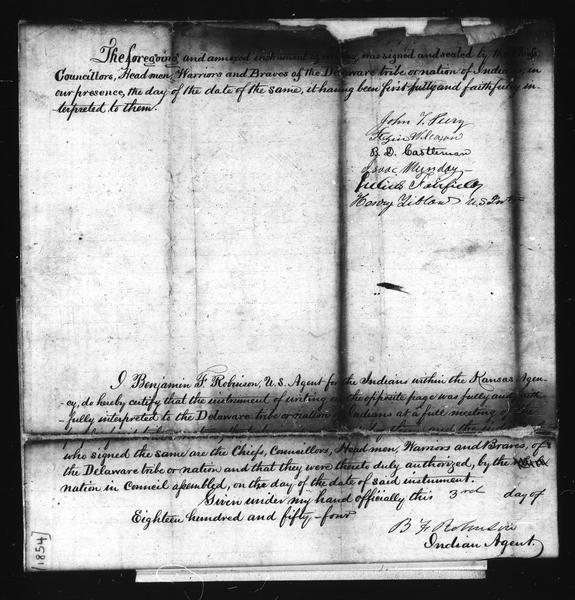 The foregoing and annexed instrument of writing, was signed and sealed by the Chiefs,
Councillors, Head men, Warriors and Braves of the Delaware tribe or nation of Indians, in
our presence, the day of the date of the same, it having been first fully and faithfully in-
terpreted to them.
John T. Peery
B. D. Castleman
Isaac Mundy
Julius Fairfield
Henry Tiblow U.S. Int
I Benjamin F. Robinson, U.S. Agent for the Indians within the Kansas Agen-
-cy, do hereby certify that the instrument of writing on the opposite page was fully and faith-
-fully interpreted to the Delaware tribe or nation of Indians at a full meeting of the
who signed the same are the Chiefs, Councillors, Head men, Warriors and Braves, of
the Delaware tribe or nation and that they were thereto duly authorized, by the
nation in Council assembled, on the day of the date of said instrument.
Given under my hand officially this 3rd day of
Eighteen hundred and fifty-four
B F Robinson
Indian Agent.
[1854]